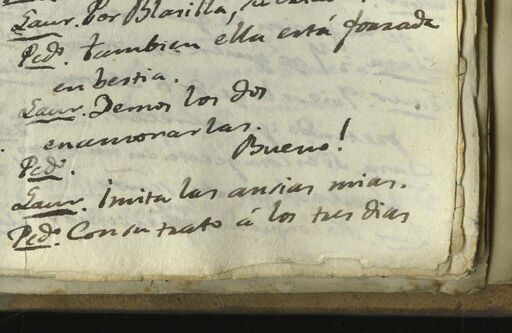 Laur. Por Blasilla,
Ped.o tambien ella está forzada
en bestia.
Laur. Demos los dos
enamorarlas.
Ped.o Bueno!
Laur. imita las ansias mias.
Ped.o Con su trato á los tres dias